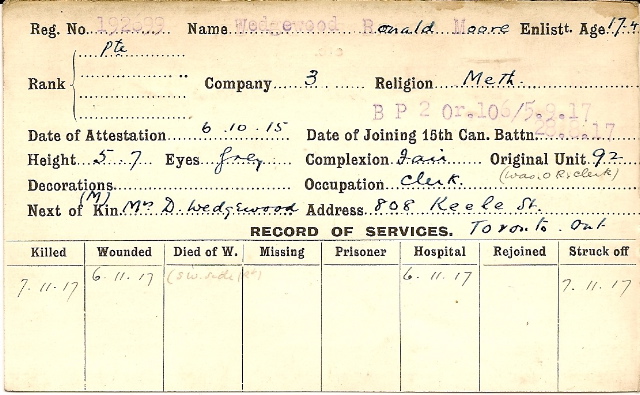 Reg. No. 192699 Name Wedgewood Ronald Moore Enlistt. Age 17.4
Pte
Rank Company 3 Religion Meth.
B P 2 Or. 106/5.9.17
Date of Attestation 6.10.15 Date of Joining 15th Can. Battn. 28.8.17
Height 5.7 Eyes Grey Complexion Fair Original Unit 92
Decorations Occupation Clerk. (was O R clerk)
Next of Kin (M) Mrs D. Wedgewood Address 808 Keele St.
RECORD OF SERVICES. Toronto. Ont
Killed Wounded Died of W. Missing Prisoner Hospital Rejoined Struck off
7.11.17 6.11.17 (SW. side) 6.11.17 7.11.17